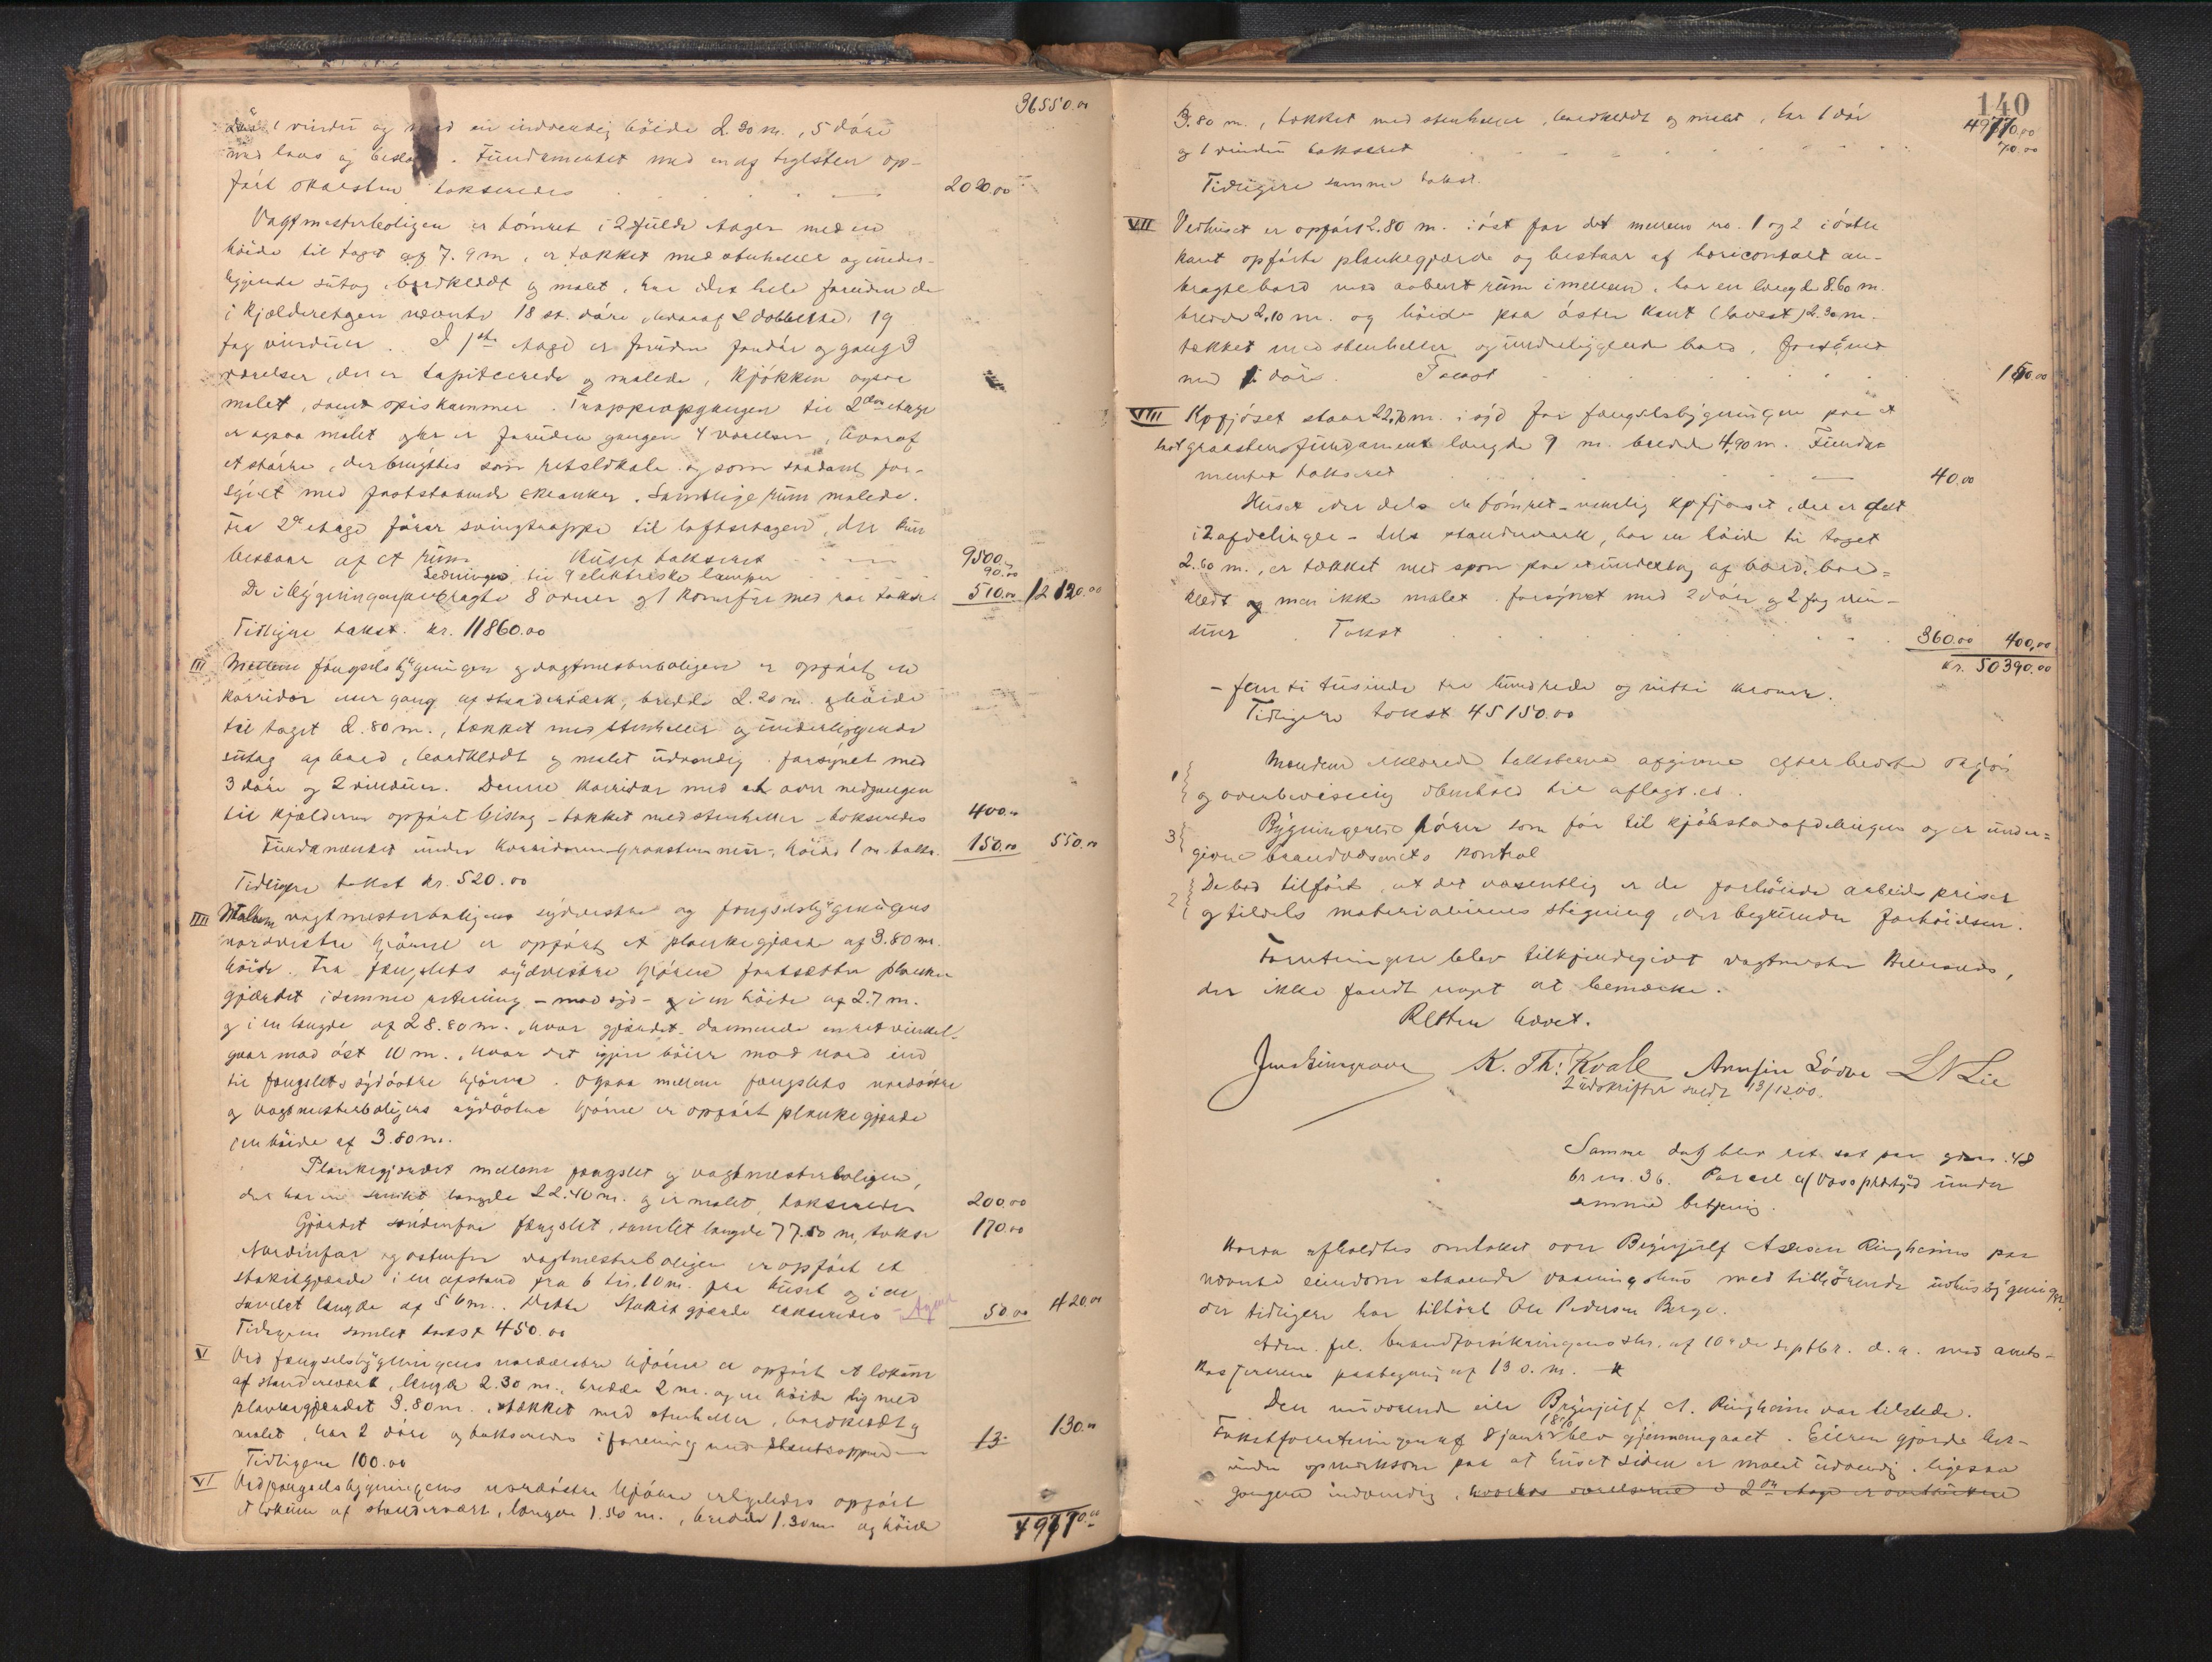 36550.00
1 vindu og med en indvendig höide 2.30 m., 5 döre
med laas og beslag. Fundamentet med en af teglsten op-
fört skorsten takseredes 2020.00
Vagtmesterboligen er tömret i 2 fulde etager med en
höide til taget af 7.9 m, er tækket med stenheller og under-
liggende sutag, bordklædt og malet, har i det hele foruden de
i kjælderetagen nævnte 18 st. döre, hvoraf 2 dobbelte, 19
fag vinduer. I 1ste etage er foruden fordör og gang 3
værelser, der er tapiserede og malede, kjökken ogsaa
malet, samt spiskammer. Trappeopgangen til 2den etage
er ogsaa malet og her er foruden gangen 4 værelser, hvoraf
et större, der benyttes som retslokale og som saadant for-
synet med faststaaende skranker. Samtlige rum malede.
Fra 2den etage förer svingtrappe til loftsetagen, der kun
bestaar af et rum. Huset takseret 9500.00
Ledninger til 9 elektriske lamper 90.00
De i bygningen anbragte 8 ovner og 1 komfur med rör takser. 510.00 12120.00
Tidligere takst kr. 11860.00
III Mellem fængselsbygningen og vagtmesterboligen er opfört en
korridor eller gang af standerværk, bredde 2.20 m. og höide
til taget 2.80 m., tækket med stenheller og underliggende
sutag af bord, bordklædt og malet udvendig. forsynet med
3 döre og 2 vinduer. Denne korridor med et over nedgangen
til kjælderen opfört bislag - tækket med stenheller - takseredes 400.00
Fundamentet under korridoren - graastensmur, höide 1 m. taks. 150.00 550.00
Tidligere takst kr. 520.00
IIII Mellem vagtmesterboligens sydvestre og fængselsbygningens
nordvestre hjörne er opfört et plankegjærde af 3.80 m.
höide. Fra fængslets sydvestre hjörne fortsætter planke
gjærdet i samme retning - mod syd - og i en höide af 2.7 m.
og i en længde af 28.80 m., hvor gjærdet, dannende en ret vinkel,
gaar mod öst 10 m., hvor det igjen böier mod nord ind
til fængslets sydöstre hjörne. Ogsaa mellem fængslets nordöstre
og vagtmesterboligens sydöstre hjörne er opfört plankegjærde
i en höide af 3.80 m.
Plankegjærdet mellem fængslet og vagtmesterboligen,
der har en samlet længde 22.40 m. og er malet, takseredes 200.00
Gjærdet söndenfor fængslet, samlet længde 77.50 m, takser 170.00
Nordenfor og östenfor vagtmesterboligen er opfört et
stakitgjærde i en afstand fra 6 til 10 m. fra huset og i en
samlet længde af 56 m. Dette stakitgjærde takseredes 50.00 420.00
Tidligere samlet takst 450.00
V Ved fængselsbygningens nordvestre hjörne er opfört et lokum
af standerværk, længde 2.30 m., bredde 2 m. og en höide lig med
plankegjærdet 3.80 m., tækket med stenheller, bordklædt og
malet, har 2 döre og takseredes i forening med 13 130.00
Tidligere 100.00
VI Ved fængselsbygningens nordöstre hjörne er ligeledes opfört
et lokum af standerværk, længde 1.50 m., bredde 1.30 m og höide
49770.00
140
49770.00
3.80 m., tækket med stenheller, bordklædt og malet, har 1 dör
og 1 vindu takseret 70.00
Tidligere samme takst.
VII Vedhuset er opfört 2.80 m. i öst for det mellem no. 1 og 2 i östre
kant opförte plankegjærde og bestaar af horizontalt an-
bragte bord med aabent rum imellem, har en længde 8.60 m.
bredde 2.10 m. og höide paa östre kant (lavest) 2.30 m.
tækket med stenheller og underliggende bord, forsynet
med 1 dör. Takst 150.00
VIII Kofjöset staar 22,70 m. i syd for fængselsbygningen paa et
lavt graastensfundament længde 9 m. bredde 4,90 m. Funda-
mentet takseret 40.00
Huset er dels tömret - nemlig kofjöset, der er delt
i 2 afdelinger - dels standerværk, har en höide til taget
2.60 m., er tækket med spon paa et undertag af bord, bord-
klædt og men ikke malet. forsynet med 2 döre og 2 fag vin-
duer. Takst 360.00 400,00
kr. 50390.00
- femti tusinde tre hundrede og nitti kroner.
Tidligere takst 45150.00
1 Mændene erklærede taksterne afgivne efter bedste skjön
og overbevisning i henhold til aflagt ed.
3 Bygningerne hörer som för til kjöbstadafdelingen og er under-
givne brandvæsenets kontrol
2 De bad tilfört, at det væsentlig er de forhöiede arbeidspriser
og tildels materialernes stigning, der begrunder forhöielsen.
Forretningen blev tilkjendegivet vagtmester
der ikke fandt noget at bemærke.
Retten hævet.
K. Th: Kvale Arnfin Lödve L N Lie
2 udskrifter sendt 13/12 00.
Samme dag blev ret sat paa gno. 48
br no. 36. Parcel af Voss prestegd under
samme betjening.
Herra afholdtes omtakst over Brynjulf Ringheims paa
nævnte eiendom staaende vaaningshus med tilhörende udhusbygning
der tidligere har tilhört Ole Pedersen Berge.
Adm. fl. brandforsikringens skr. af 10de septbr. d. a. med amts-
kassererens paategning af 13 s. m.
Den nuværende eier Brynjulf A. Ringheim var tilstede.
Takstforretningen af 8 januar blev gjennemgaaet. Eieren gjorde her-
under opmerksom paa at huset siden er malet udvendig. ligesaa
gangen indvendig, hvorhos værelserne i 2den etage er